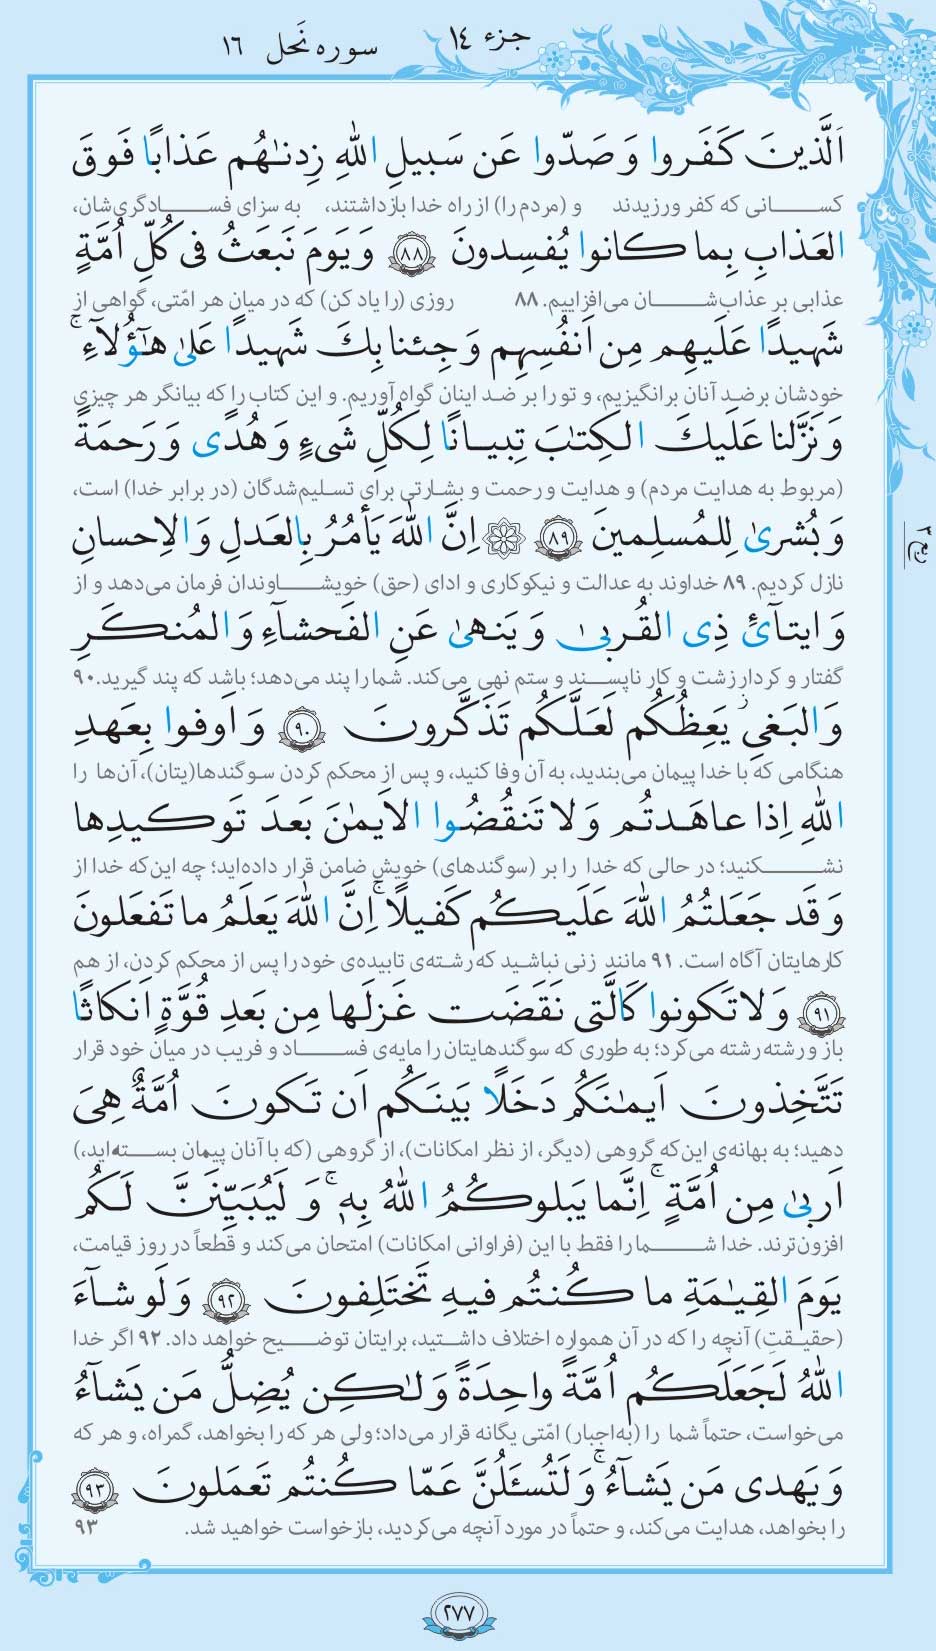 جزء ١٤
سوره نَحل ١٦
اَلَّذينَ كَفَروا وَ صَدّوا عَن سَبيلِ اللهِ زِدنـٰهُم عَذابًا فَوقَ
کسـانی که کفر ورزیدند و (مردم را) از راه خدا بازداشتند، به سزای فسـادگری‌شان،
العَذابِ بِما كانوا يُفسِدونَ ﴿٨٨﴾ وَ يَومَ نَبعَثُ فى كُلِّ اُمَّةٍ
عذابی بر عذاب‌شـان می‌افزاییم. ۸۸ روزی (را یاد کن) که در میان هر امّتی، گواهی از
شَهيدًا عَلَيهِم مِن اَنفُسِهِم وَ جِئنا بِكَ شَهيدًا عَلىٰ هـٰٓؤُلآءِ ۚ
خودشان بر ضد آنان برانگیزیم، و تو را بر ضد اینان گواه آوریم. و این کتاب را که بیانگر هر چیزی
وَ نَزَّلنا عَلَيكَ الكِتـٰبَ تِبيـانًا لِكُلِّ شَىءٍ وَ هُدًى وَ رَحمَةً
(مربوط به هدایت مردم) و هدایت و رحمت و بشارتی برای تسلیم‌شدگان (در برابر خدا) است،
وَ بُشرىٰ لِلمُسلِمينَ ﴿٨٩﴾ ۞ اِنَّ اللهَ يَأمُرُ بِالعَدلِ وَ الاِحسانِ
نازل کردیم. ۸۹ خداوند به عدالت و نیکوکاری و ادای (حق) خویشـاوندان فرمان می‌دهد و از
ربع ٣
وَ ايتآئِ ذِى القُربىٰ وَ يَنهىٰ عَنِ الفَحشآءِ وَ المُنكَرِ
گفتار و کردار زشت و کار ناپسـند و ستم نهی می‌کند. شما را پند می‌دهد؛ باشد که پند گیرید. ۹۰
وَ البَغىِ ۚ يَعِظُكُم لَعَلَّكُم تَذَكَّرونَ ﴿٩٠﴾ وَ اَوفوا بِعَهدِ
هنگامی که با خدا پیمان می‌بندید، به آن وفا کنید، و پس از محکم کردن سوگندها(یتان)، آن‌ها را
اللهِ اِذا عاهَدتُم وَ لا تَنقُضُوا الاَيمـٰنَ بَعدَ تَوكيدِها
نشـکنید؛ در حالی که خدا را بر (سوگندهای) خویش ضامن قرار داده‌اید؛ چه این‌که خدا از
وَ قَد جَعَلتُمُ اللهَ عَلَيكُم كَفيلًا ۚ اِنَّ اللهَ يَعلَمُ ما تَفعَلونَ
کارهایتان آگاه است. ۹۱ مانند زنی نباشید که رشته‌ی تابیده‌ی خود را پس از محکم کردن، از هم
﴿٩١﴾ وَ لا تَكونوا كَالَّتى نَقَضَت غَزلَها مِن بَعدِ قُوَّةٍ اَنكاثًا
باز و رشته رشته می‌کرد؛ به طوری که سوگندهایتان را مایه‌ی فسـاد و فریب در میان خود قرار
تَتَّخِذونَ اَيمـٰنَكُم دَخَلًا بَينَكُم اَن تَكونَ اُمَّةٌ هِىَ
دهید؛ به بهانه‌ی این‌که گروهی (دیگر، از نظر امکانات)، از گروهی (که با آنان پیمان بسـته‌اید،)
اَربىٰ مِن اُمَّةٍ ۚ اِنَّما يَبلوكُمُ اللهُ بِهٖ ۚ وَ لَيُبَيِّنَنَّ لَكُم
افزون‌ترند. خدا شـما را فقط با این (فراوانی امکانات) امتحان می‌کند و قطعاً در روز قیامت،
يَومَ القِيـٰمَةِ ما كُنتُم فيهِ تَختَلِفونَ ﴿٩٢﴾ وَ لَو شآءَ
(حقیقتِ) آنچه را که در آن همواره اختلاف داشـتید، برایتان توضـیح خواهد داد. ۹۲ اگر خدا
اللهُ لَجَعَلَكُم اُمَّةً واحِدَةً وَ لـٰكِن يُضِلُّ مَن يَشآءُ
می‌خواست، حتماً شما را (به‌اجبار) امّتی یگانه قرار می‌داد؛ ولی هر که را بخواهد، گمراه، و هر که
وَ يَهدى مَن يَشآءُ ۚ وَ لَتُسـَٔلُنَّ عَمّا كُنتُم تَعمَلونَ ﴿٩٣﴾
را بخواهد، هدایت می‌کند، و حتماً در مورد آنچه می‌کردید، بازخواست خواهید شد. ۹۳
٢٧٧